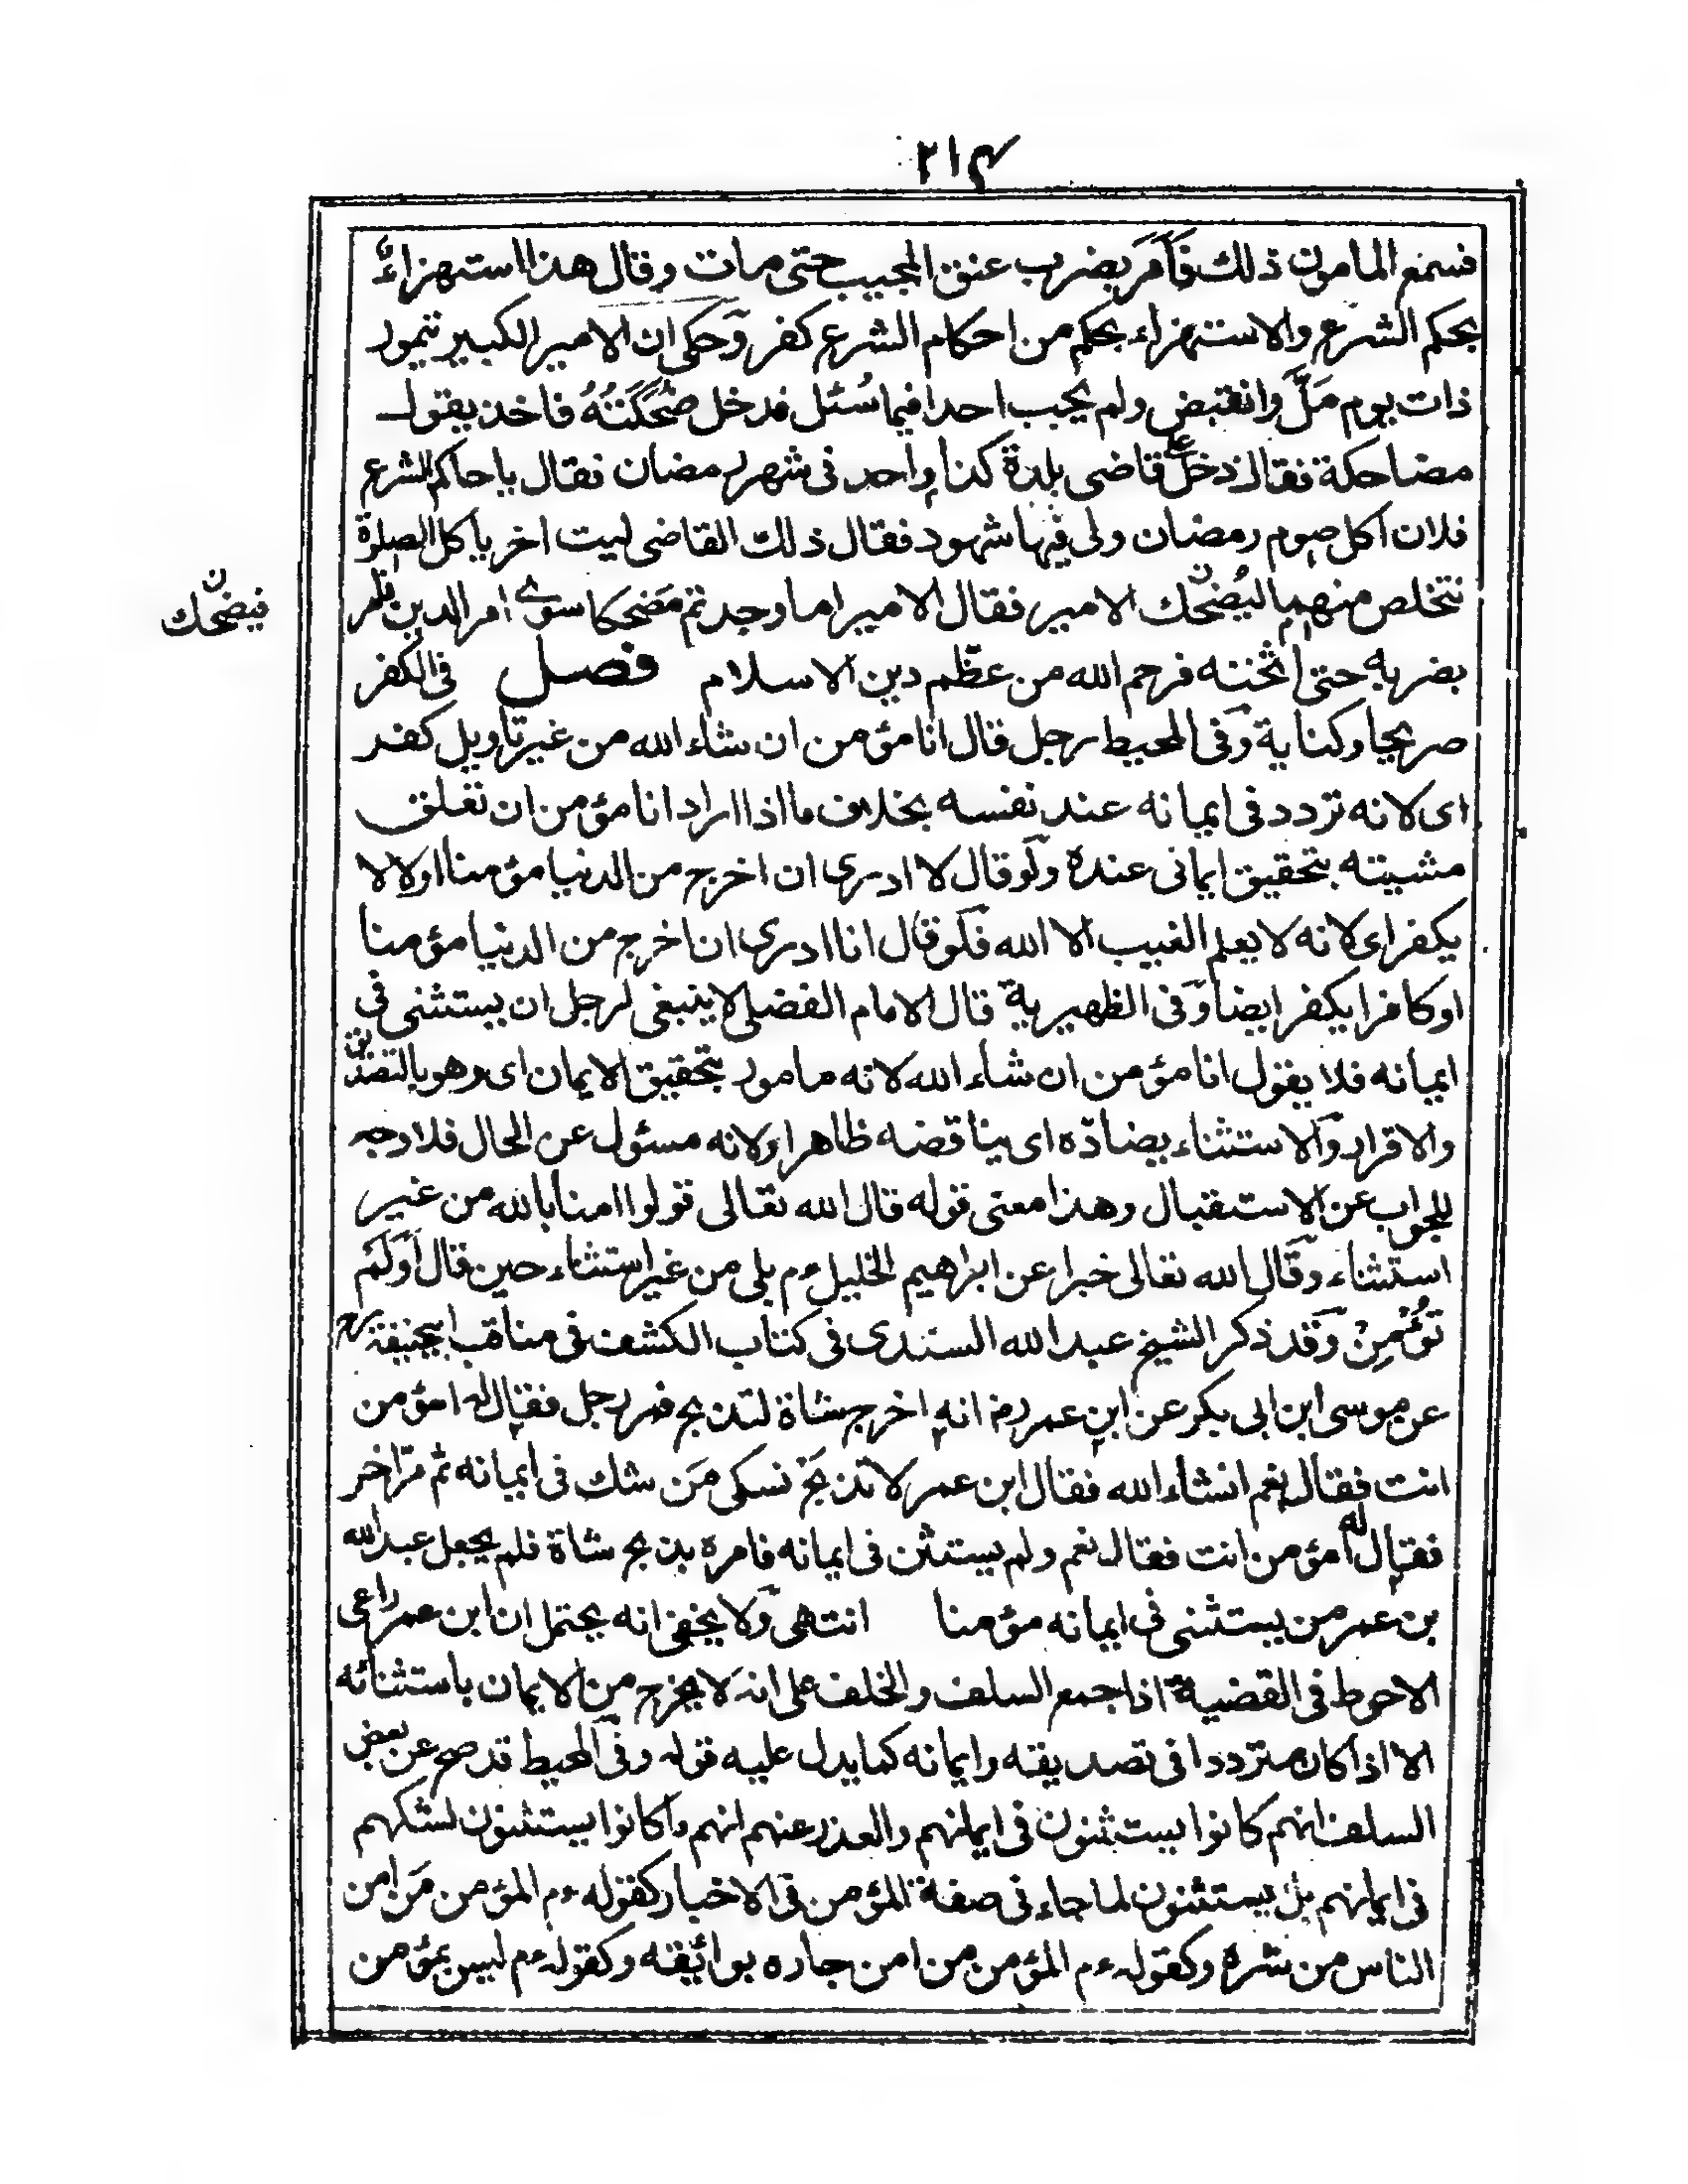 ٢١٤
فسمع المامون ذلك فَاَمَرَ بضرب عنق المجيب حتى مات وقال هذا استهزاءٌ
بحكم الشرع والاستهزاء بحكم من احكام الشرع كفر وحكى ان الامير الكبير تيمور
ذات يوم مَلَّ وانقبض ولم يجب احدا فيما سُئل فدخل ضُحَكَتُهُ فاخذ يقول
مضاحكة فقال دخل على قاضى بلدة كذا واحد فى شهر رمضان فقال يا حاكم الشرع
فلان اكل صوم رمضان ولى فيها شهود فقال ذلك القاضى ليت اخر ياكل الصلوة
نتخلص منهما ليُضحك الامير فقال الامير اما وجدتم مَضحكا سوى امر الدين فامر
فيضحك ن
بضربه حتى اثخنه فرحم الله من عظّم دين الاسلام فصل فى الكفر
صريحا وكناية وفى المحيط رجل قال انا مؤمن ان شاء الله من غير تاويل كفر
اى لانه تردد فى ايمانه عند نفسه بخلاف ما اذا اراد انا مؤمن ان تعلق
مشيته بتحقيق ايمانى عنده ولو قال لا ادرى ان اخرج من الدنيا مؤمنا اولا لا
يكفر اى لانه لا يعلم الغيب الا الله فلو قال انا ادرى ان اخرج من الدنيا مؤمنا
او كافرا يكفر ايضا وفى الظهيرية قال الامام الفضلى لا ينبغى لرجل ان يستثنى فى
ايمانه فلا يقول انا مؤمن ان شاء الله لانه مامور بتحقيق الايمان اى وهو بالتصديق
والاقرار والاستثناء يضادّه اى يناقضه ظاهرا ولانه مسئول عن الحال فلا وجه
للجواب عن الاستقبال وهذا معنى قوله قال الله تعالى قولوا امنا بالله من غير
استثناء وقال الله تعالى خبرا عن ابراهيم الخليل ءم بلى من غير استثناء حين قال اَوَلَمْ
تُؤْمِنْ وقد ذكر الشيخ عبد الله السندى فى كتاب الكشف فى مناقب ابيحنيفة رح
عن موسى ابن ابى بكر عن ابن عمر رض انه اخرج شاة لتذبح فمر رجل فقال له امؤمن
انت فقال نعم انشاء الله فقال ابن عمر لا تذبح نسكى مَن شك فى ايمانه ثم مرّ اخر
فقال له أمؤمن انت فقال نعم ولم يستثن فى ايمانه فامره بذبح شاة فلم يجعل عبد الله
بن عمر من يستثنى فى ايمانه مؤمنا انتهى ولا يخفى انه يحتمل ان ابن عمر راعى
الاحوط فى القضية اذا جمع السلف والخلف على انه لا يخرج من الايمان باستثنائه
الا اذا كان مترددا فى تصديقه وايمانه كما يدل عليه قوله وفى المحيط قد صح عن بعض
السلف انهم كانوا يستثنون فى ايمانهم والعذر عنهم انهم ما كانوا يستثنون لشكهم
فى ايمانهم بل يستثنون لما جاء فى صفة المؤمن فى الاخبار كقوله ءم المؤمن مَن امن
الناس من شره وكقوله ءم المؤمن من امن جاره بوائقه وكقوله ءم ليس بمؤمن